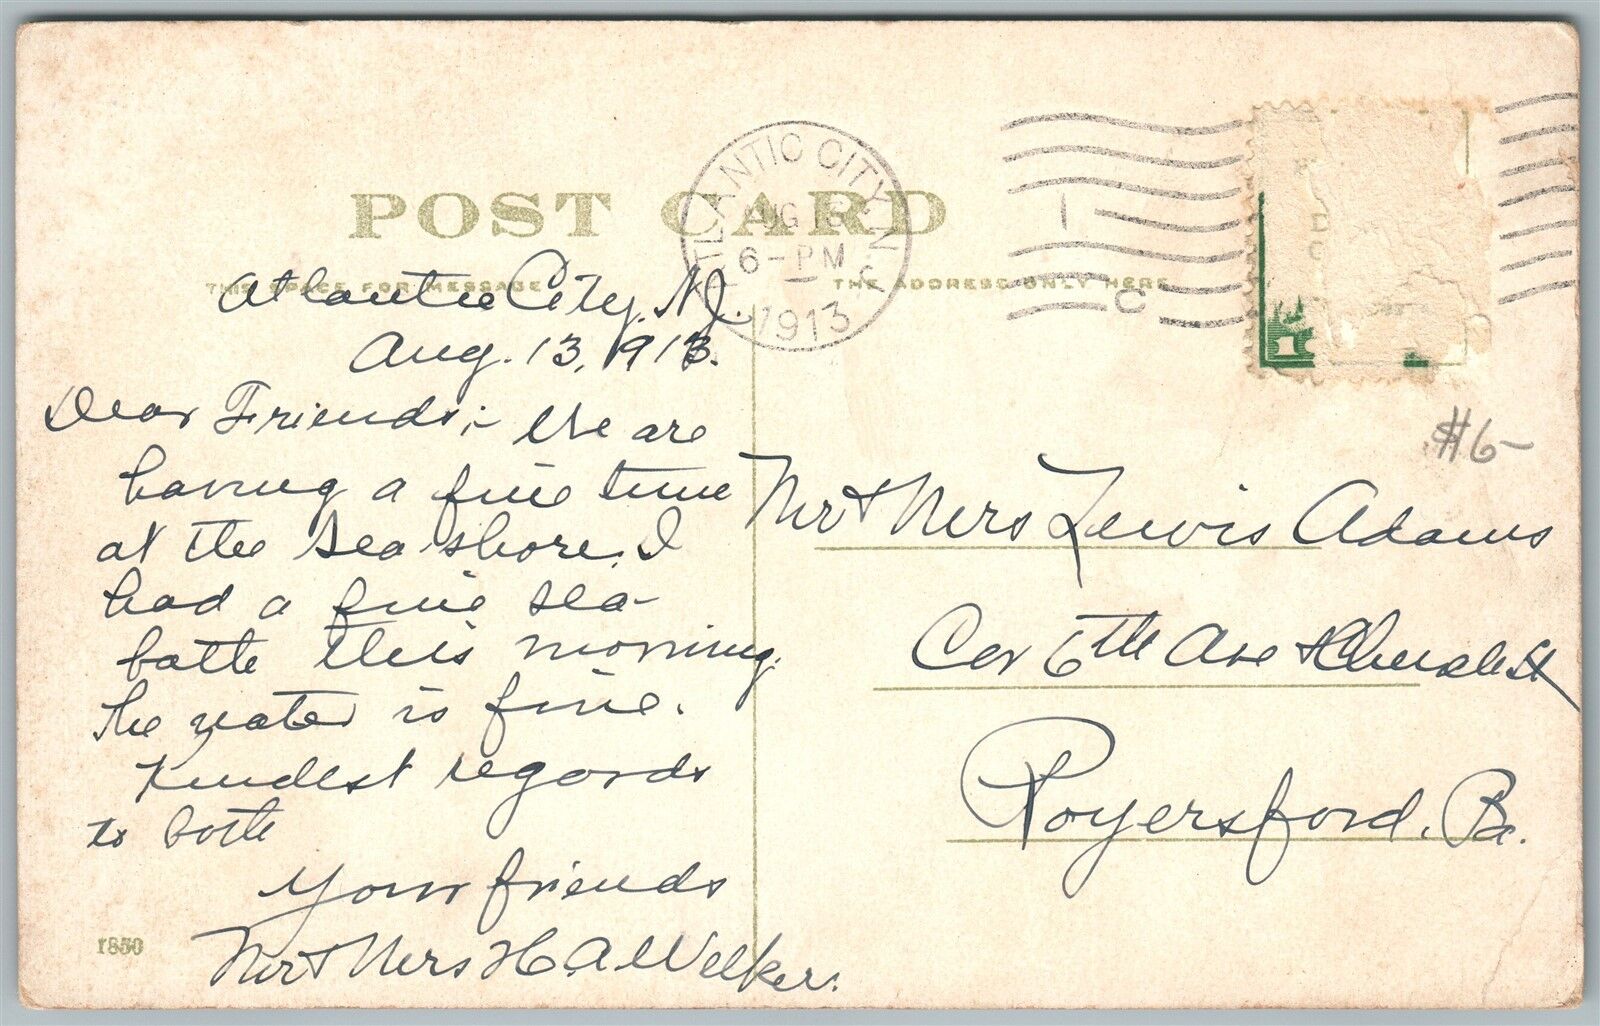 POST CARD
THIS SPACE FOR MESSAGE
THE ADDRESS ONLY HERE
ATLANTIC CITY, N.J.
AUG
6-PM
1913
1
C
1
$6-
Atlantic City, N.J.
Aug. 13, 1913.
Dear Friends;- We are
having a fine time
at the sea shore. I
had a fine sea-
bathe this morning.
the water is fine.
Kindest regards
to both
Your friends
Mr & Mrs H. A. Welker.
1850
Mr & Mrs Lewis Adams
Cor 6th Ave & Church St
Royersford, Pa.